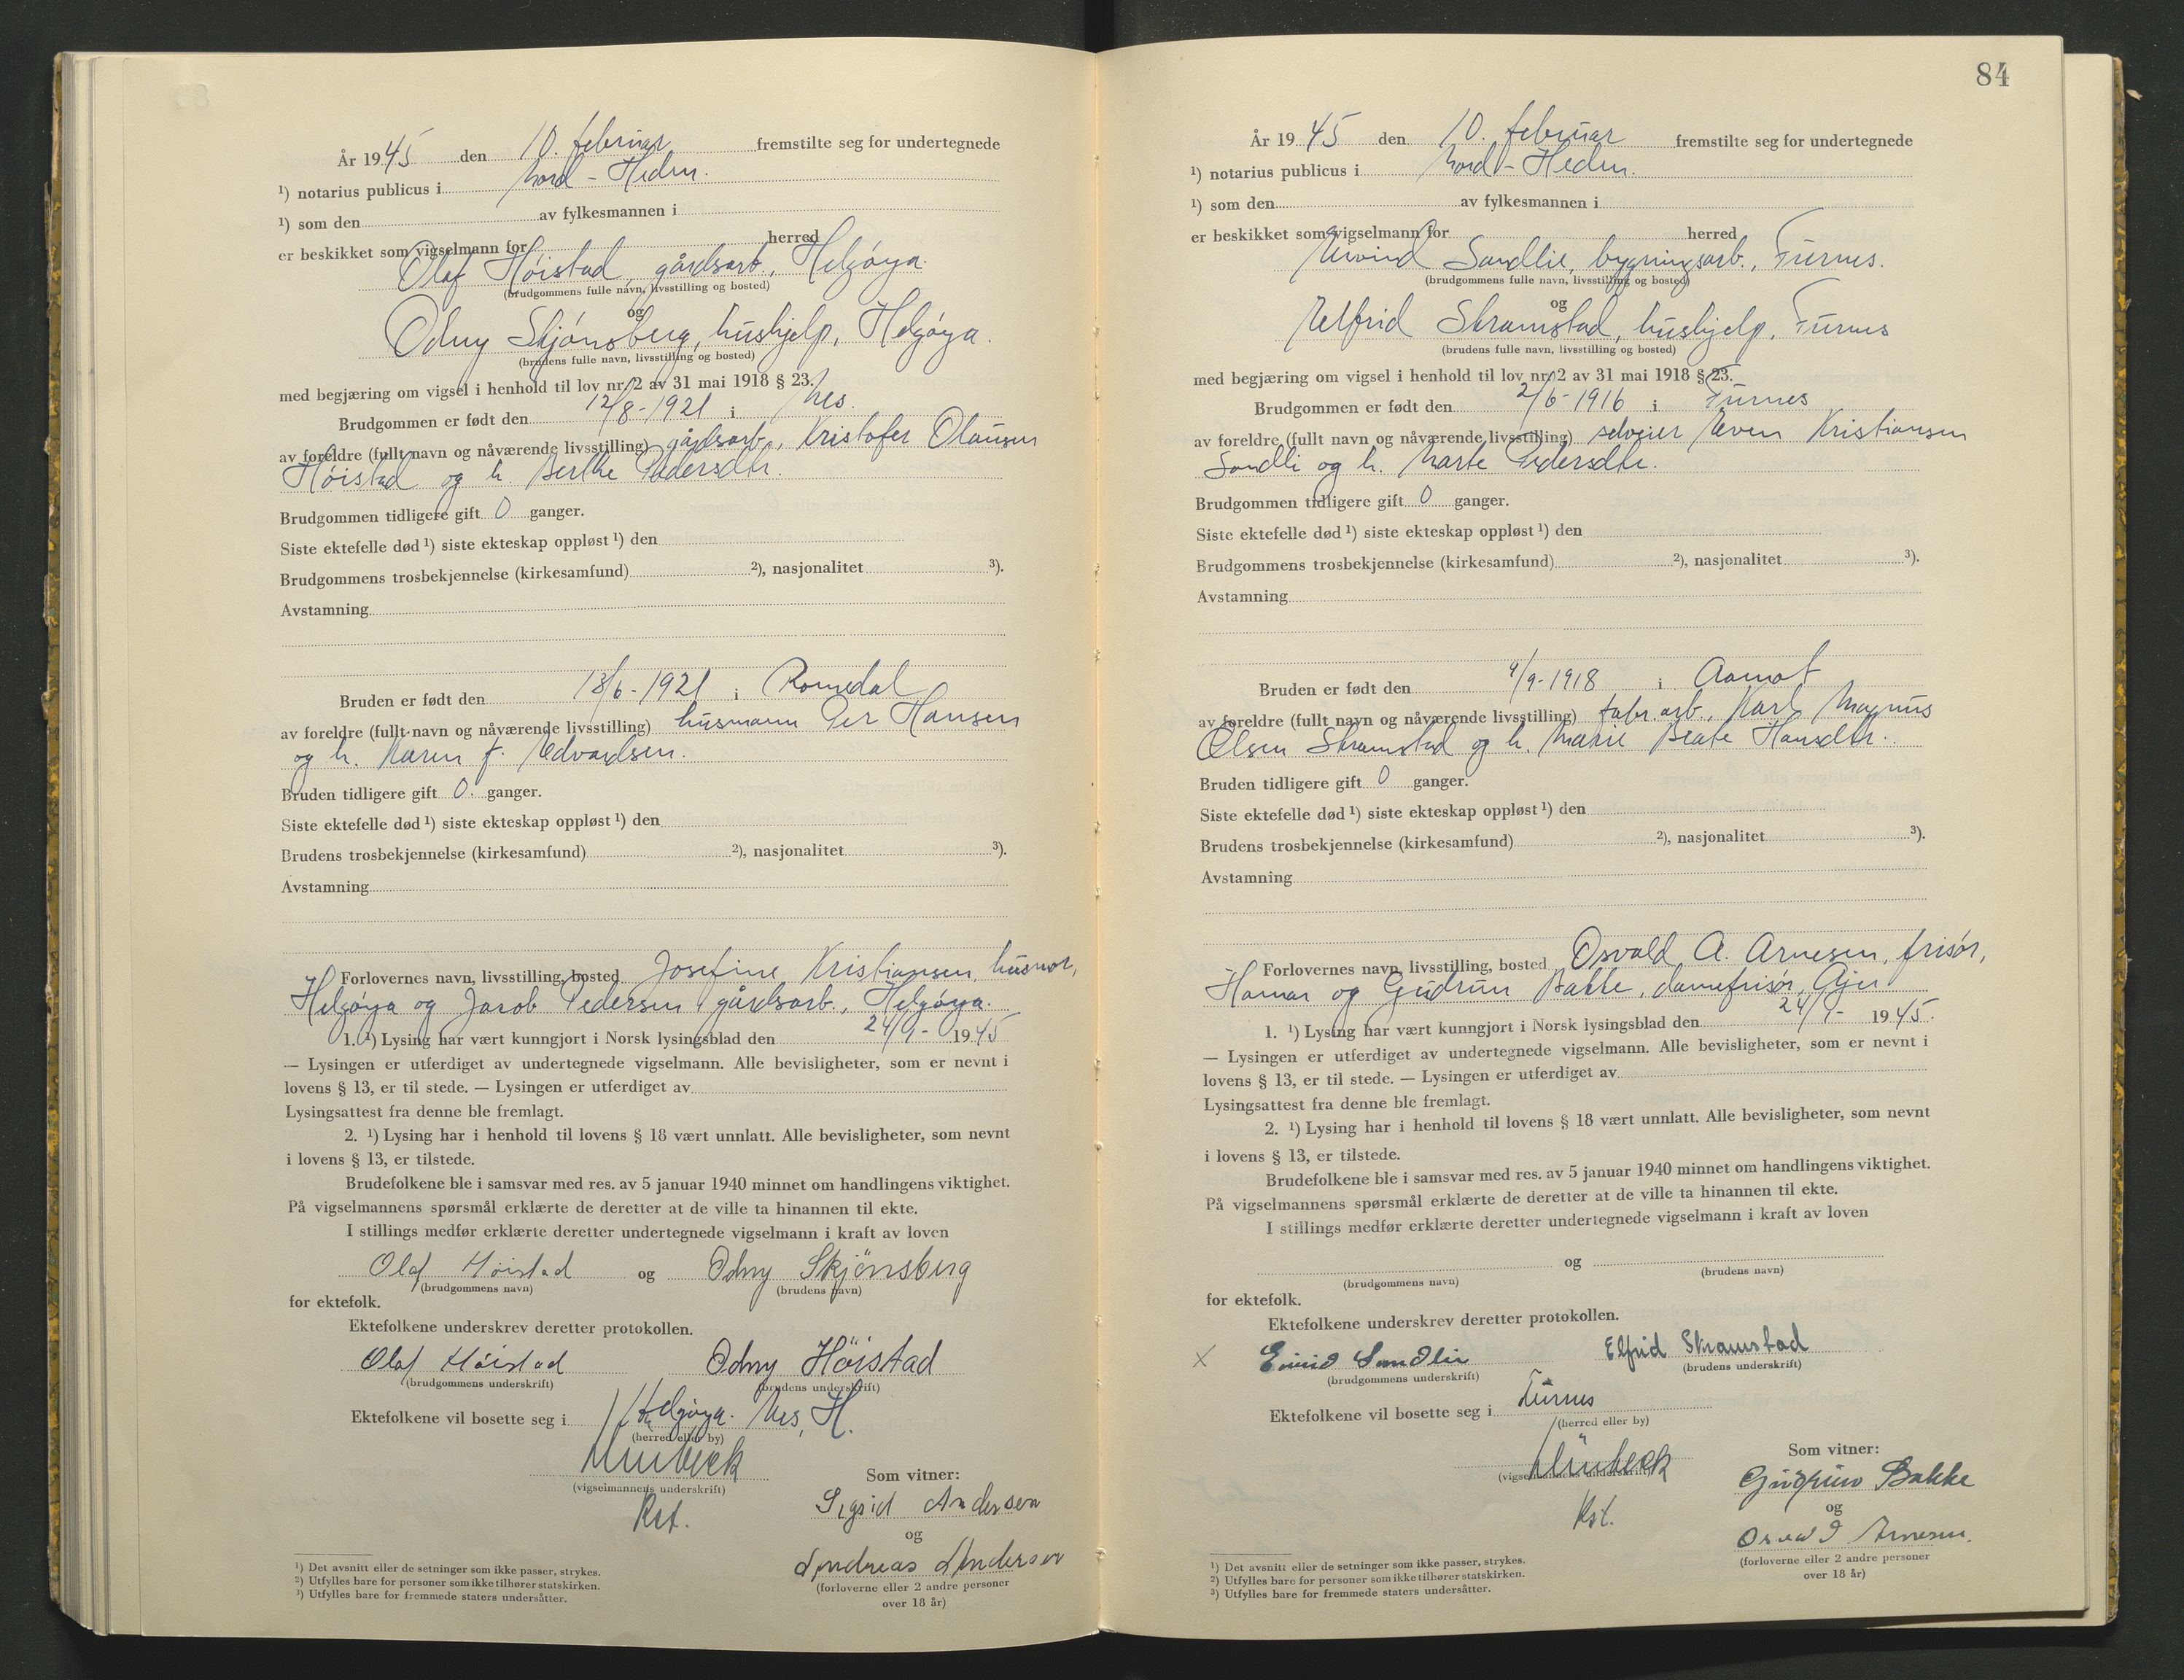 År 1945 den 10. februar fremstilte seg for undertegnede
¹) notarius publicus i Nord-Hedm.
¹) som den av fylkesmannen i
er beskikket som vigselmann for herred
Olaf Höistad, gårdsarb., Helgöya.
(brudgommens fulle navn, livsstilling og bosted)
og
Odny Skjönsberg, hushjelp, Helgöya.
(brudens fulle navn, livsstilling og bosted)
med begjæring om vigsel i henhold til lov nr. 2 av 31 mai 1918 § 23.
Brudgommen er født den 12/8-1921 i Nes.
av foreldre (fullt navn og nåværende livsstilling) gårdsarb., Kristofer Olausen
Höistad og h. Berthe Pedersdtr.
Brudgommen tidligere gift 0 ganger.
Siste ektefelle død ¹) siste ekteskap oppløst ¹) den
Brudgommens trosbekjennelse (kirkesamfund) ²), nasjonalitet ³).
Avstamning
Bruden er født den 18/6-1921 i Romedal
av foreldre (fullt navn og nåværende livsstilling) husmann Per Hansen
og h. Karen f. Edvardsen.
Bruden tidligere gift 0. ganger.
Siste ektefelle død ¹) siste ekteskap oppløst ¹) den
Brudens trosbekjennelse (kirkesamfund) ²), nasjonalitet ³).
Avstamning
Forlovernes navn, livsstilling, bosted Josefine Kristiansen, husmor,
Helgöya og Jacob Pedersen, gårdsarb., Helgöya.
1. ¹) Lysing har vært kunngjort i Norsk lysingsblad den 24/1- 1945
— Lysingen er utferdiget av undertegnede vigselmann. Alle bevisligheter, som er nevnt i
lovens § 13, er til stede. — Lysingen er utferdiget av
Lysingsattest fra denne ble fremlagt.
2. ¹) Lysing har i henhold til lovens § 18 vært unnlatt. Alle bevisligheter, som nevnt
i lovens § 13, er tilstede.
Brudefolkene ble i samsvar med res. av 5 januar 1940 minnet om handlingens viktighet.
På vigselmannens spørsmål erklærte de deretter at de ville ta hinannen til ekte.
I stillings medfør erklærte deretter undertegnede vigselmann i kraft av loven
Olaf Höistad og Odny Skjönsberg
(brudgommens navn) (brudens navn)
for ektefolk.
Ektefolkene underskrev deretter protokollen.
Olaf Höistad Odny Höistad
(brudgommens underskrift) (brudens underskrift)
Ektefolkene vil bosette seg i Helgöya. Nes, H.
(herred eller by)
(vigselmannens underskrift)
Som vitner:
Sigrid Andersen
og
Andreas Andersen
(forloverne eller 2 andre personer
over 18 år)
¹) Det avsnitt eller de setninger som ikke passer, strykes.
²) Utfylles bare for personer som ikke tilhører statskirken.
³) Utfylles bare for fremmede staters undersåtter.
84
År 1945 den 10. februar fremstilte seg for undertegnede
¹) notarius publicus i Nord-Hedm.
¹) som den av fylkesmannen i
er beskikket som vigselmann for herred
Eivind Sandlie, bygningsarb., Furnes.
(brudgommens fulle navn, livsstilling og bosted)
og
Elfrid Skramstad, hushjelp, Furnes
(brudens fulle navn, livsstilling og bosted)
med begjæring om vigsel i henhold til lov nr. 2 av 31 mai 1918 § 23.
Brudgommen er født den 2/6-1916 i Furnes
av foreldre (fullt navn og nåværende livsstilling) selveier Even Kristiansen
Sandli og h. Marte Pedersdtr.
Brudgommen tidligere gift 0 ganger.
Siste ektefelle død ¹) siste ekteskap oppløst ¹) den
Brudgommens trosbekjennelse (kirkesamfund) ²), nasjonalitet ³).
Avstamning
Bruden er født den 9/9-1918 i Aamot
av foreldre (fullt navn og nåværende livsstilling) fabr.arb., Karl Magnus
Olsen Skramstad og h. Marie Beate Hansdtr.
Bruden tidligere gift 0 ganger.
Siste ektefelle død ¹) siste ekteskap oppløst ¹) den
Brudens trosbekjennelse (kirkesamfund) ²), nasjonalitet ³).
Avstamning
Forlovernes navn, livsstilling, bosted Osvald A. Arnesen, frisör,
Hamar og Gudrun Bakke, damefrisör, Ajer
1. ¹) Lysing har vært kunngjort i Norsk lysingsblad den 24/1- 1945.
— Lysingen er utferdiget av undertegnede vigselmann. Alle bevisligheter, som er nevnt i
lovens § 13, er til stede. — Lysingen er utferdiget av
Lysingsattest fra denne ble fremlagt.
2. ¹) Lysing har i henhold til lovens § 18 vært unnlatt. Alle bevisligheter, som nevnt
i lovens § 13, er tilstede.
Brudefolkene ble i samsvar med res. av 5 januar 1940 minnet om handlingens viktighet.
På vigselmannens spørsmål erklærte de deretter at de ville ta hinannen til ekte.
I stillings medfør erklærte deretter undertegnede vigselmann i kraft av loven
og
(brudgommens navn) (brudens navn)
for ektefolk.
Ektefolkene underskrev deretter protokollen.
x Eivind Sandlie Elfrid Skramstad
(brudgommens underskrift) (brudens underskrift)
Ektefolkene vil bosette seg i Furnes
(herred eller by)
Som vitner:
Gudrun Bakke
og
Osvald Arnesen.
(forloverne eller 2 andre personer
over 18 år)
¹) Det avsnitt eller de setninger som ikke passer, strykes.
²) Utfylles bare for personer som ikke tilhører statskirken.
³) Utfylles bare for fremmede staters undersåtter.